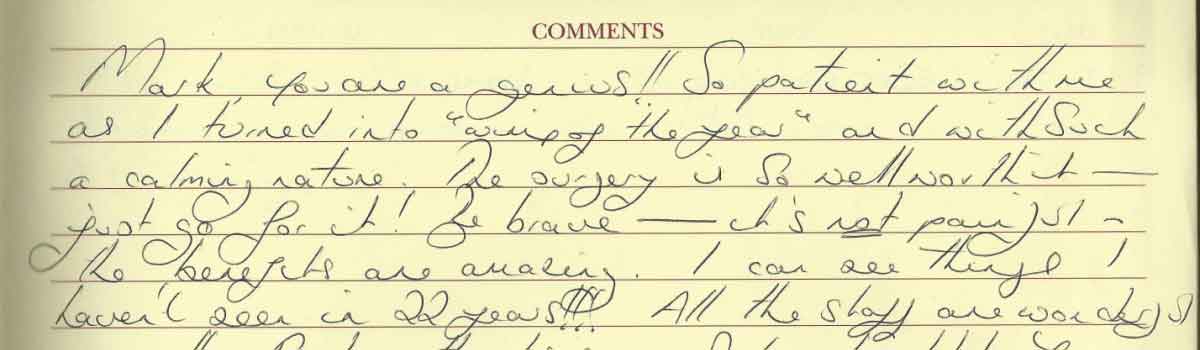 COMMENTS
Mark, you are a genius!! So patient with me
as I turned into "wimp of the year" and with such
a calming nature. The surgery is so well worth it —
just go for it! Be brave — it's not painful -
the benefits are amazing. I can see things I
haven't seen in 22 years!!! All the staff are wonderful